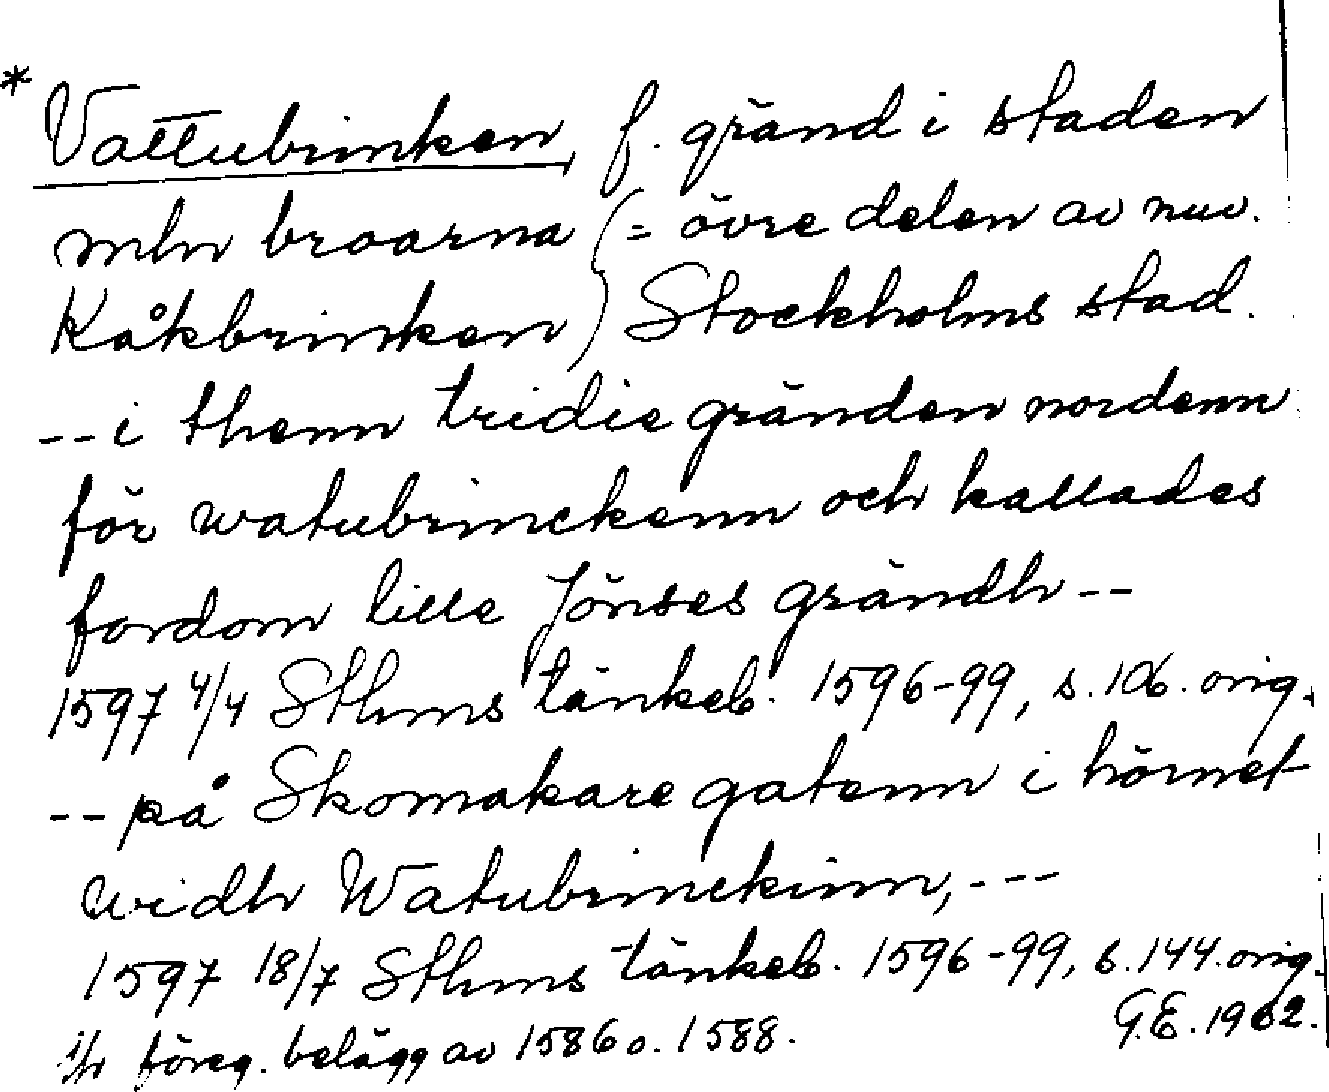 * Vattubrinken, f. gränd i staden
mln broarna (= övre delen av nuv.
Kåkbrinken) Stockholms stad.
-- i thenn tridie gränden nordenn
för watubrinckenn och kallades
fordom lille Jönses grändh --
1597 4/4 Sthms tänkeb. 1596-99, s. 106. orig.
-- på Skomakare gatenn i hörnet
widh Watubrinckinn, ---
1597 18/7 Sthms tänkeb. 1596-99, s. 144. orig.
föreg. belägg av 1586 o. 1588.
G.E. 1962.